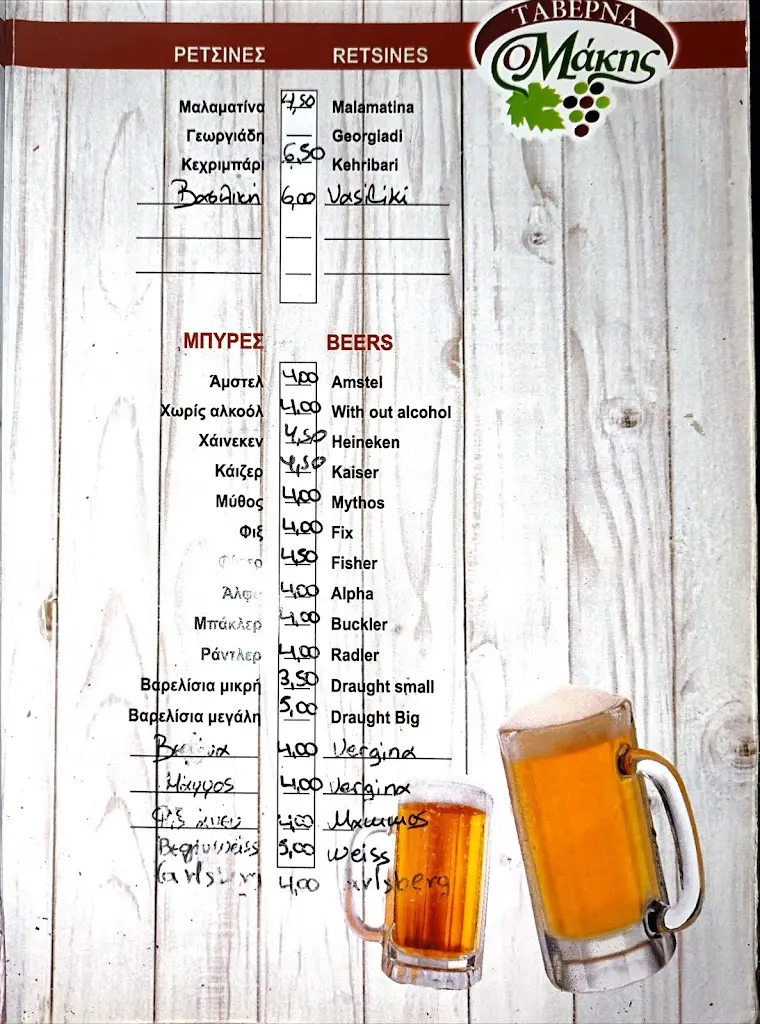 ΤΑΒΕΡΝΑ
Ο Μάκης
ΡΕΤΣΙΝΕΣ RETSINES
Μαλαματίνα 4,50 Malamatina
Γεωργιάδη — Georgiadi
Κεχριμπάρι 6,50 Kehribari
Βασιλική 6,00 Vasiliki
ΜΠΥΡΕΣ BEERS
Άμστελ 4,00 Amstel
Χωρίς αλκοόλ 4,00 With out alcohol
Χάινεκεν 4,50 Heineken
Κάιζερ 4,50 Kaiser
Μύθος 4,00 Mythos
Φιξ 4,00 Fix
4,50 Fisher
Άλφα 4,00 Alpha
Μπάκλερ 4,00 Buckler
Ράντλερ 4,00 Radler
Βαρελίσια μικρή 3,50 Draught small
Βαρελίσια μεγάλη 5,00 Draught Big
4,00 Vergina
4,00 Vergina
Φιξ άνευ 4,00
5,00 weiss
4,00 Carlsberg